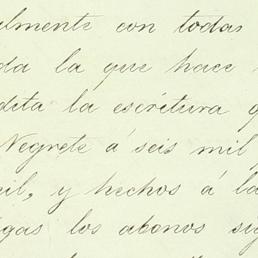 almente con todas
da la que hace
dita la escritura q
Negrete á seis mil
mil, y hechos á la
gas los abonos sig